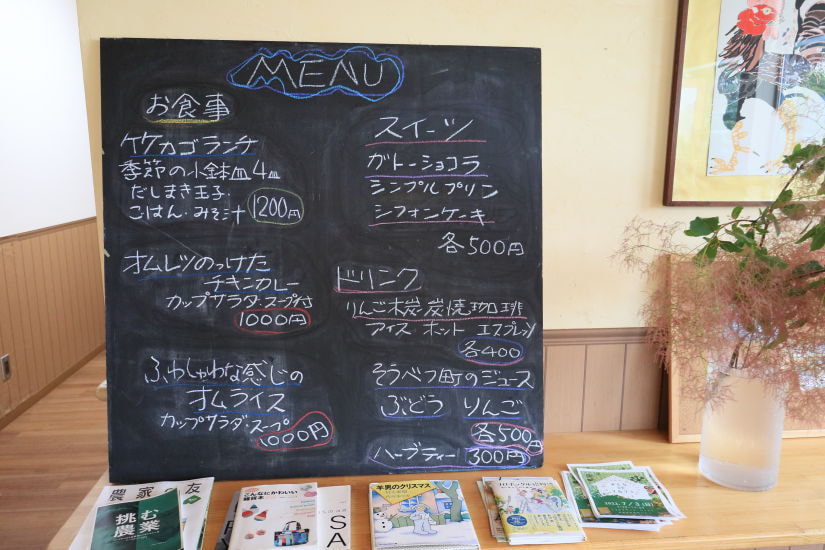 MENU
お食事
イケカゴランチ
季節の小鉢皿4皿
だしまき玉子
ごはん・みそ汁 1200円
オムレツのっけた
チキンカレー
カップサラダ・スープ付
1000円
ふわしゅわな感じの
オムライス
カップサラダ・スープ
1000円
スイーツ
ガトーショコラ
シンプルプリン
シフォンケーキ
各500円
ドリンク
りんご木炭炭焼珈琲
アイス ホット エスプレッソ
各400
そうべつ町のジュース
ぶどう りんご
各500円
ハーブティー 300円
農家 友
挑む
農業
こんなにかわいい
雑貨本
SA
羊男のクリスマス